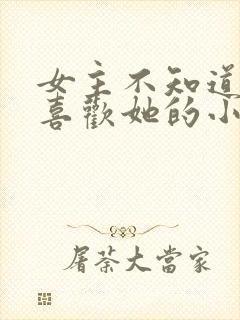 女主不知道
喜歡她的小
屠蔡大當家